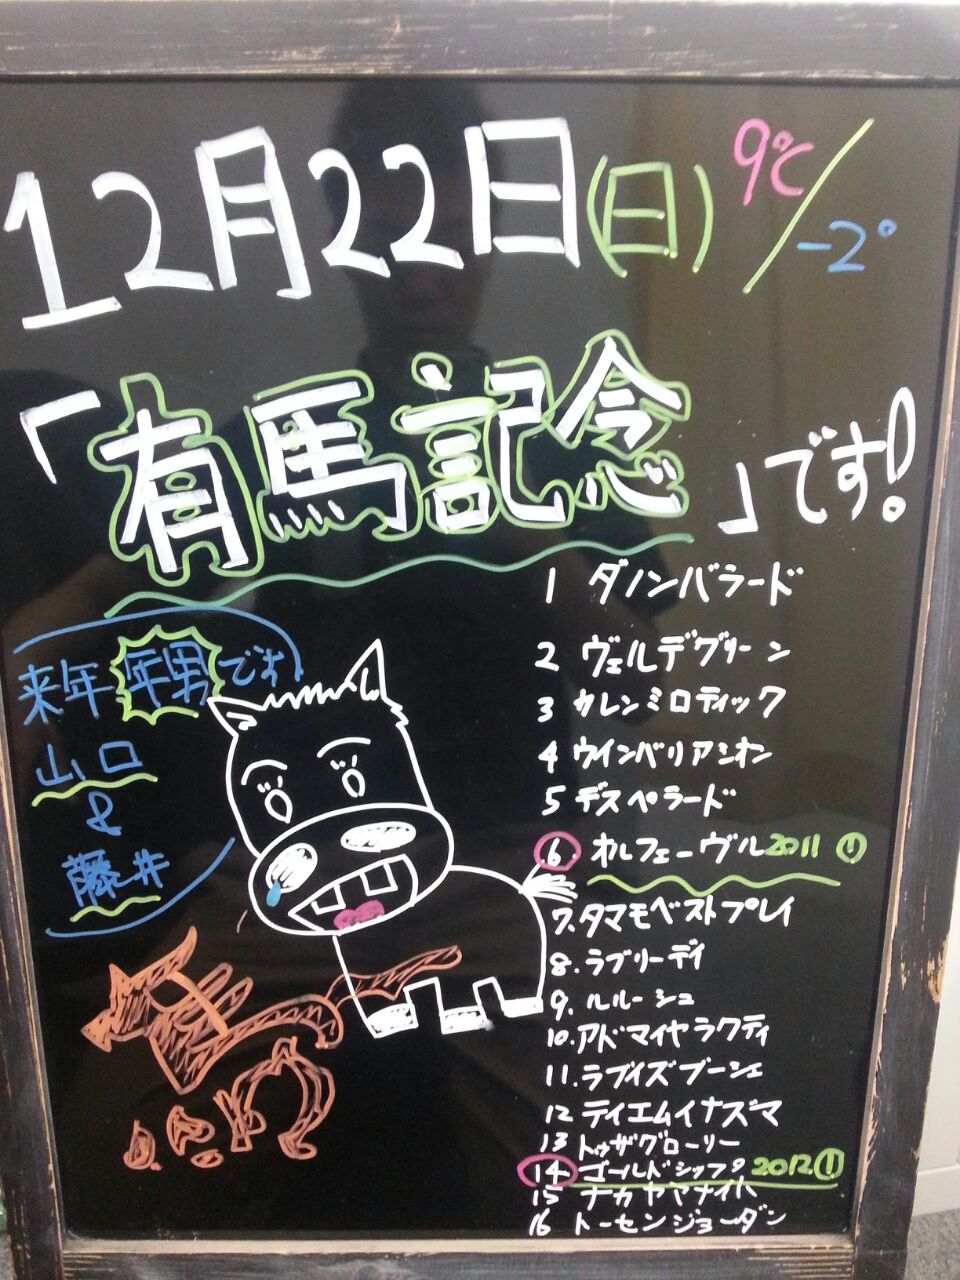 12月22日(日) 9℃/-2°
「有馬記念」です!
来年年男です
山口
&
藤井
1 ダノンバラード
2 ヴェルデグリーン
3 カレンミロティック
4 ウインバリアシオン
5 デスペラード
6. オルフェーヴル2011①
7.タマモベストプレイ
8.ラブリーデイ
9.ルルーシュ
10.アドマイヤラクティ
11.ラブイズブーシェ
12 テイエムイナズマ
13 トゥザグローリー
14 ゴールドシップ2012①
15 ナカヤマナイト
16 トーセンジョーダン